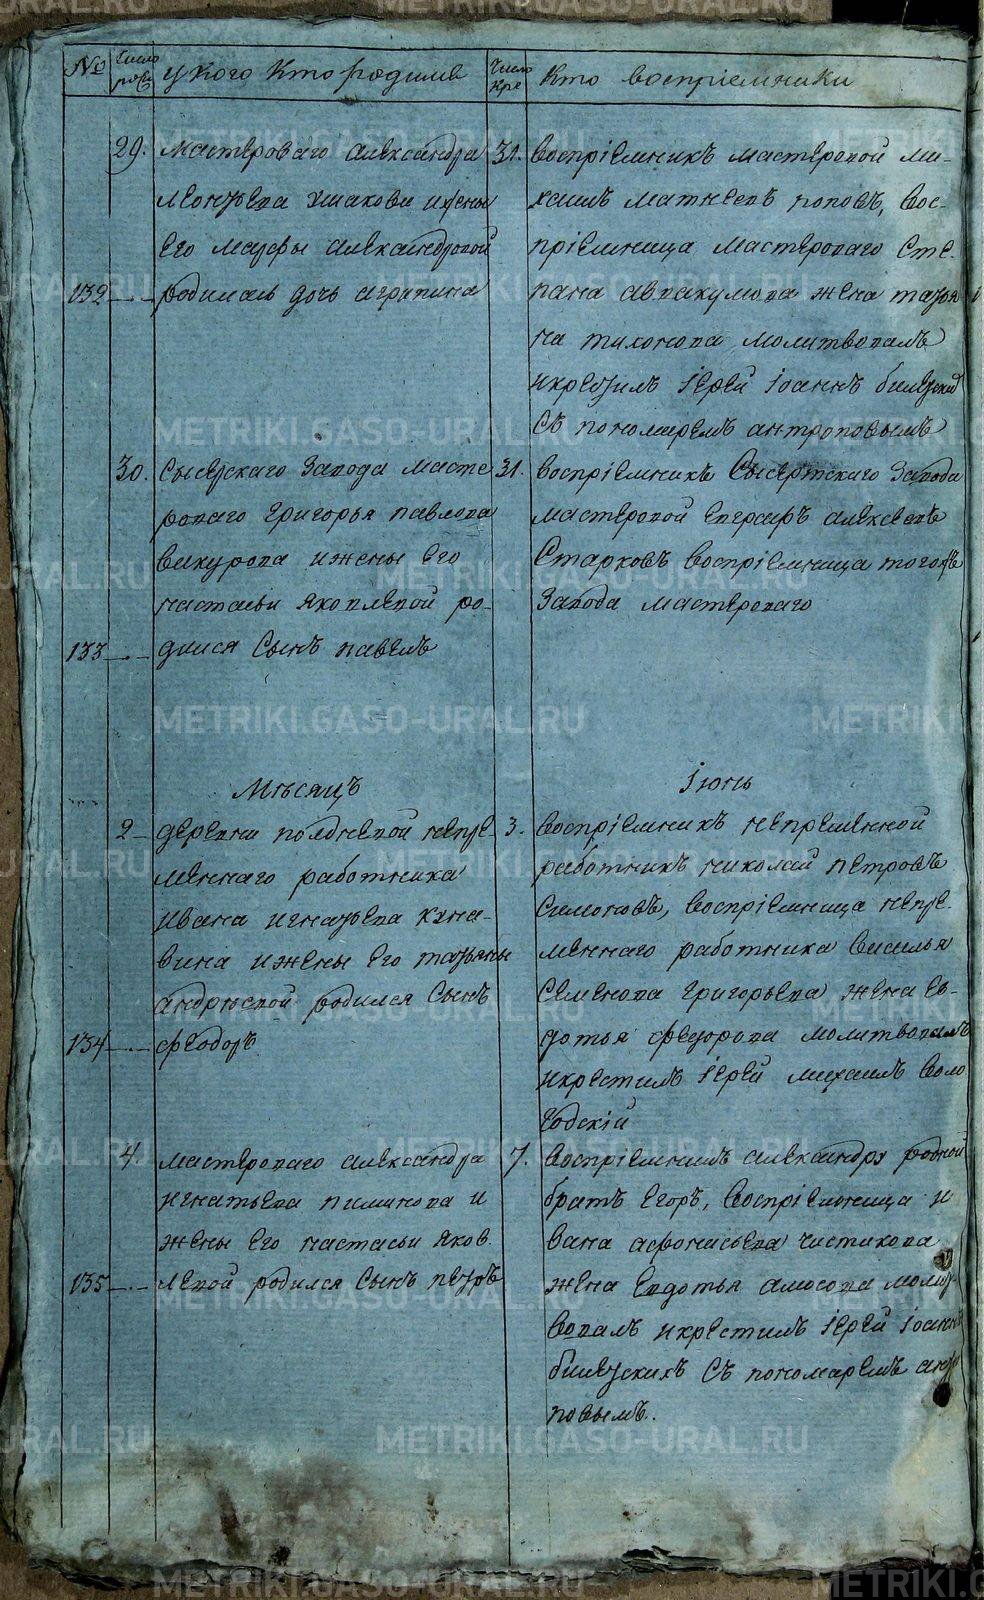 № Число рож у кого кто родился Число кре кто воспріемники
29. мастероваго александра
леонтьева ушакова и жены
его марфы александровой
132 родилась дочь аграпина
31. воспріемникъ мастеровой ми-
хаилъ матвеевъ поповъ, вос-
пріемница мастероваго сте-
пана аввакумова жена татья
на тихонова молитвовалъ
и крестилъ іерей іоаннъ
съ пономаремъ антроповымъ
30. Сысерскаго завода масте
роваго григорья павлова
викурова и жены его
настасьи яковлевой ро-
133 дился сынъ павелъ
31. воспріемникъ Сысертскаго завода
мастеровой евграфъ алексеевъ
Старковъ воспріемница тогожъ
завода мастероваго
Мѣсяцъ Іюнь
2 деревни полдневой непре
меннаго работника
ивана игнатьева кина-
вина и жены его татьяны
андрюской родился сынъ
134 феодоръ
3. воспріемникъ непременной
работникъ николай петровъ
Симоновъ, воспріемница непре-
меннаго работника василья
Семенова григорьева жена ев-
дотья федорова молитвовалъ
и крестилъ іерей михаилъ воло
годскій
4. мастероваго александра
игнатьева пилинова и
жены его настасьи яков
135 левой родился сынъ петръ
7. воспріемникъ александру родной
братъ егоръ, воспріемница и
вана афонасьева чистикова
жена евдотья амосова молит
вовалъ и крестилъ іерей іоаннъ
съ пономаремъ ант
повымъ.
METRIKI.GASO-URAL.RU